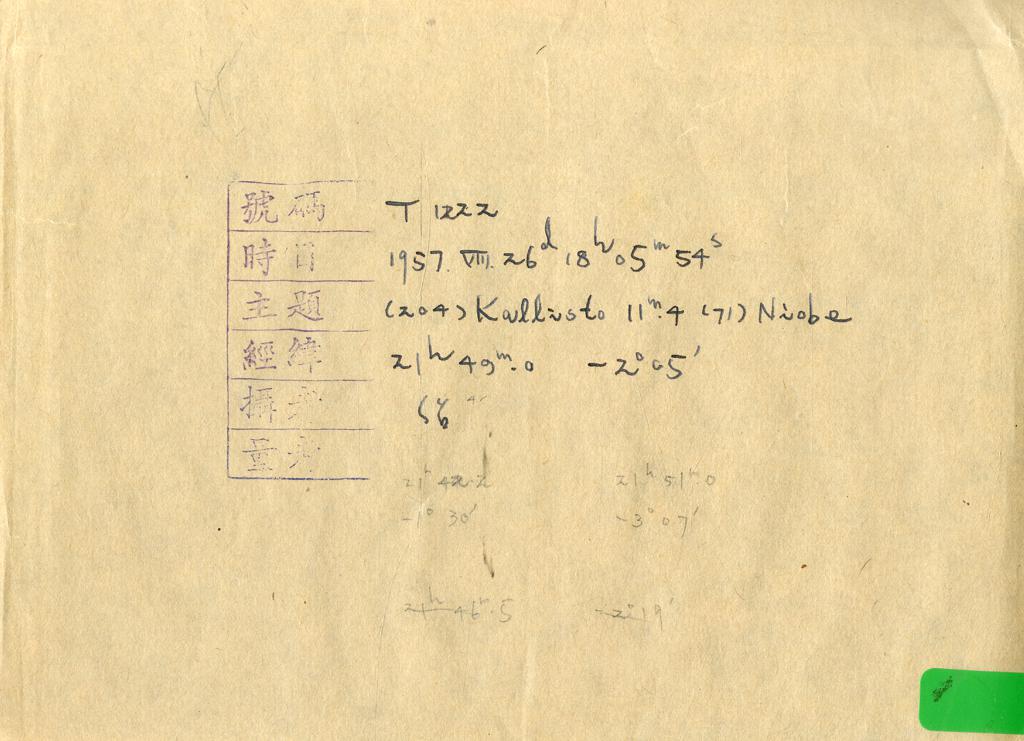 號碼 T 1222
時日 1957. VIII. 26ᵈ 18ʰ 05ᵐ 54ˢ
主題 (204) Kallisto 11ᵐ.4 (71) Niobe
經緯 21ʰ 49ᵐ.0 -2°05′
攝者
量者
21ʰ 51ᵐ.0
-1° 30′ -3° 07′
21ʰ 46ᵐ.5 -2°19′